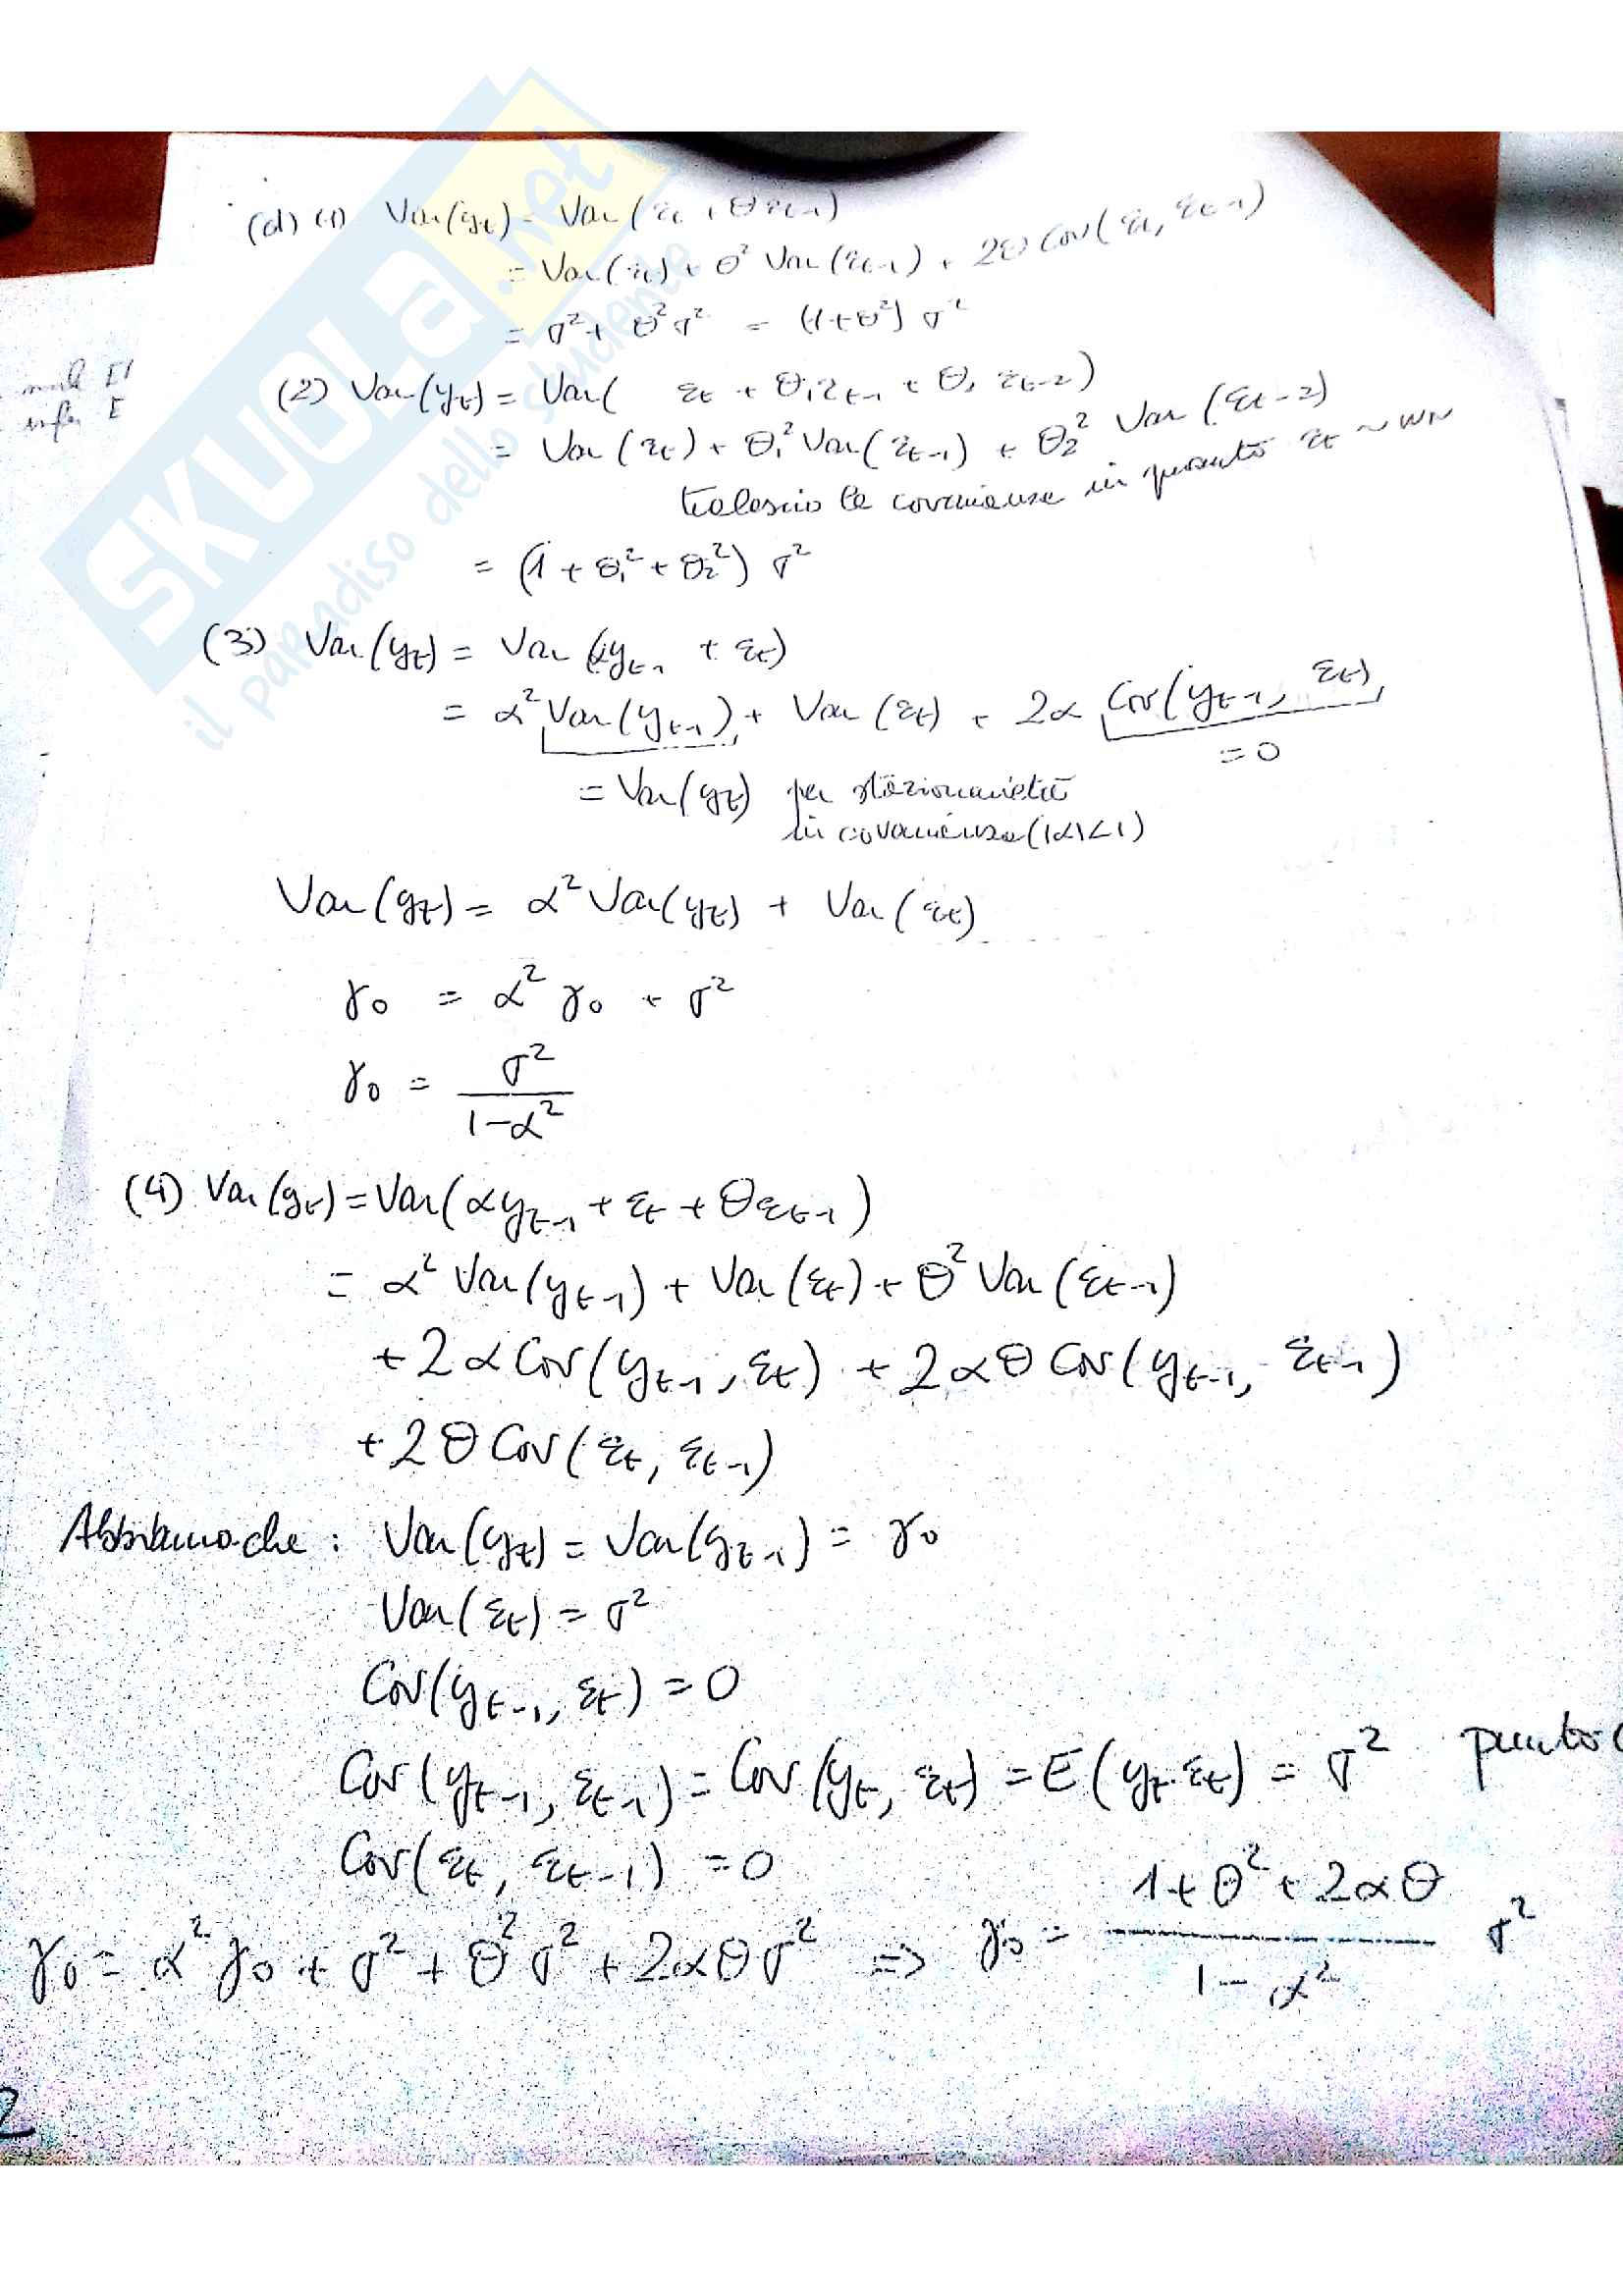 SKUOLA.net
il paradiso dello studente
(d) (1) Var(yt) = Var(εt + θεt-1)
= Var(εt) + θ² Var(εt-1) + 2θ Cov(εt, εt-1)
= σ² + θ²σ² = (1+θ²) σ²
(2) Var(yt) = Var( εt + θ₁εt-1 + θ₂ εt-2)
= Var(εt) + θ₁² Var(εt-1) + θ₂² Var(εt-2)
tralascio le covarianze in quanto εt ~ WN
= (1 + θ₁² + θ₂²) σ²
(3) Var(yt) = Var(αyt-1 + εt)
= α² Var(yt-1) + Var(εt) + 2α Cov(yt-1, εt)
= 0
= Var(yt) per stazionarietà
in covarianza (|α|<1)
Var(yt) = α² Var(yt) + Var(εt)
γ0 = α² γ0 + σ²
γ0 = σ² / 1-α²
(4) Var(yt) = Var(αyt-1 + εt + θεt-1)
= α² Var(yt-1) + Var(εt) + θ² Var(εt-1)
+ 2α Cov(yt-1, εt) + 2αθ Cov(yt-1, εt-1)
+ 2θ Cov(εt, εt-1)
Abbiamo che : Var(yt) = Var(yt-1) = γ0
Var(εt) = σ²
Cov(yt-1, εt) = 0
Cov(yt-1, εt-1) = Cov(yt, εt) = E(yt·εt) = σ² punto
Cov(εt, εt-1) = 0
γ0 = α²γ0 + σ² + θ²σ² + 2αθσ² => γ0 = 1+θ²+2αθ / 1-α² σ²
2